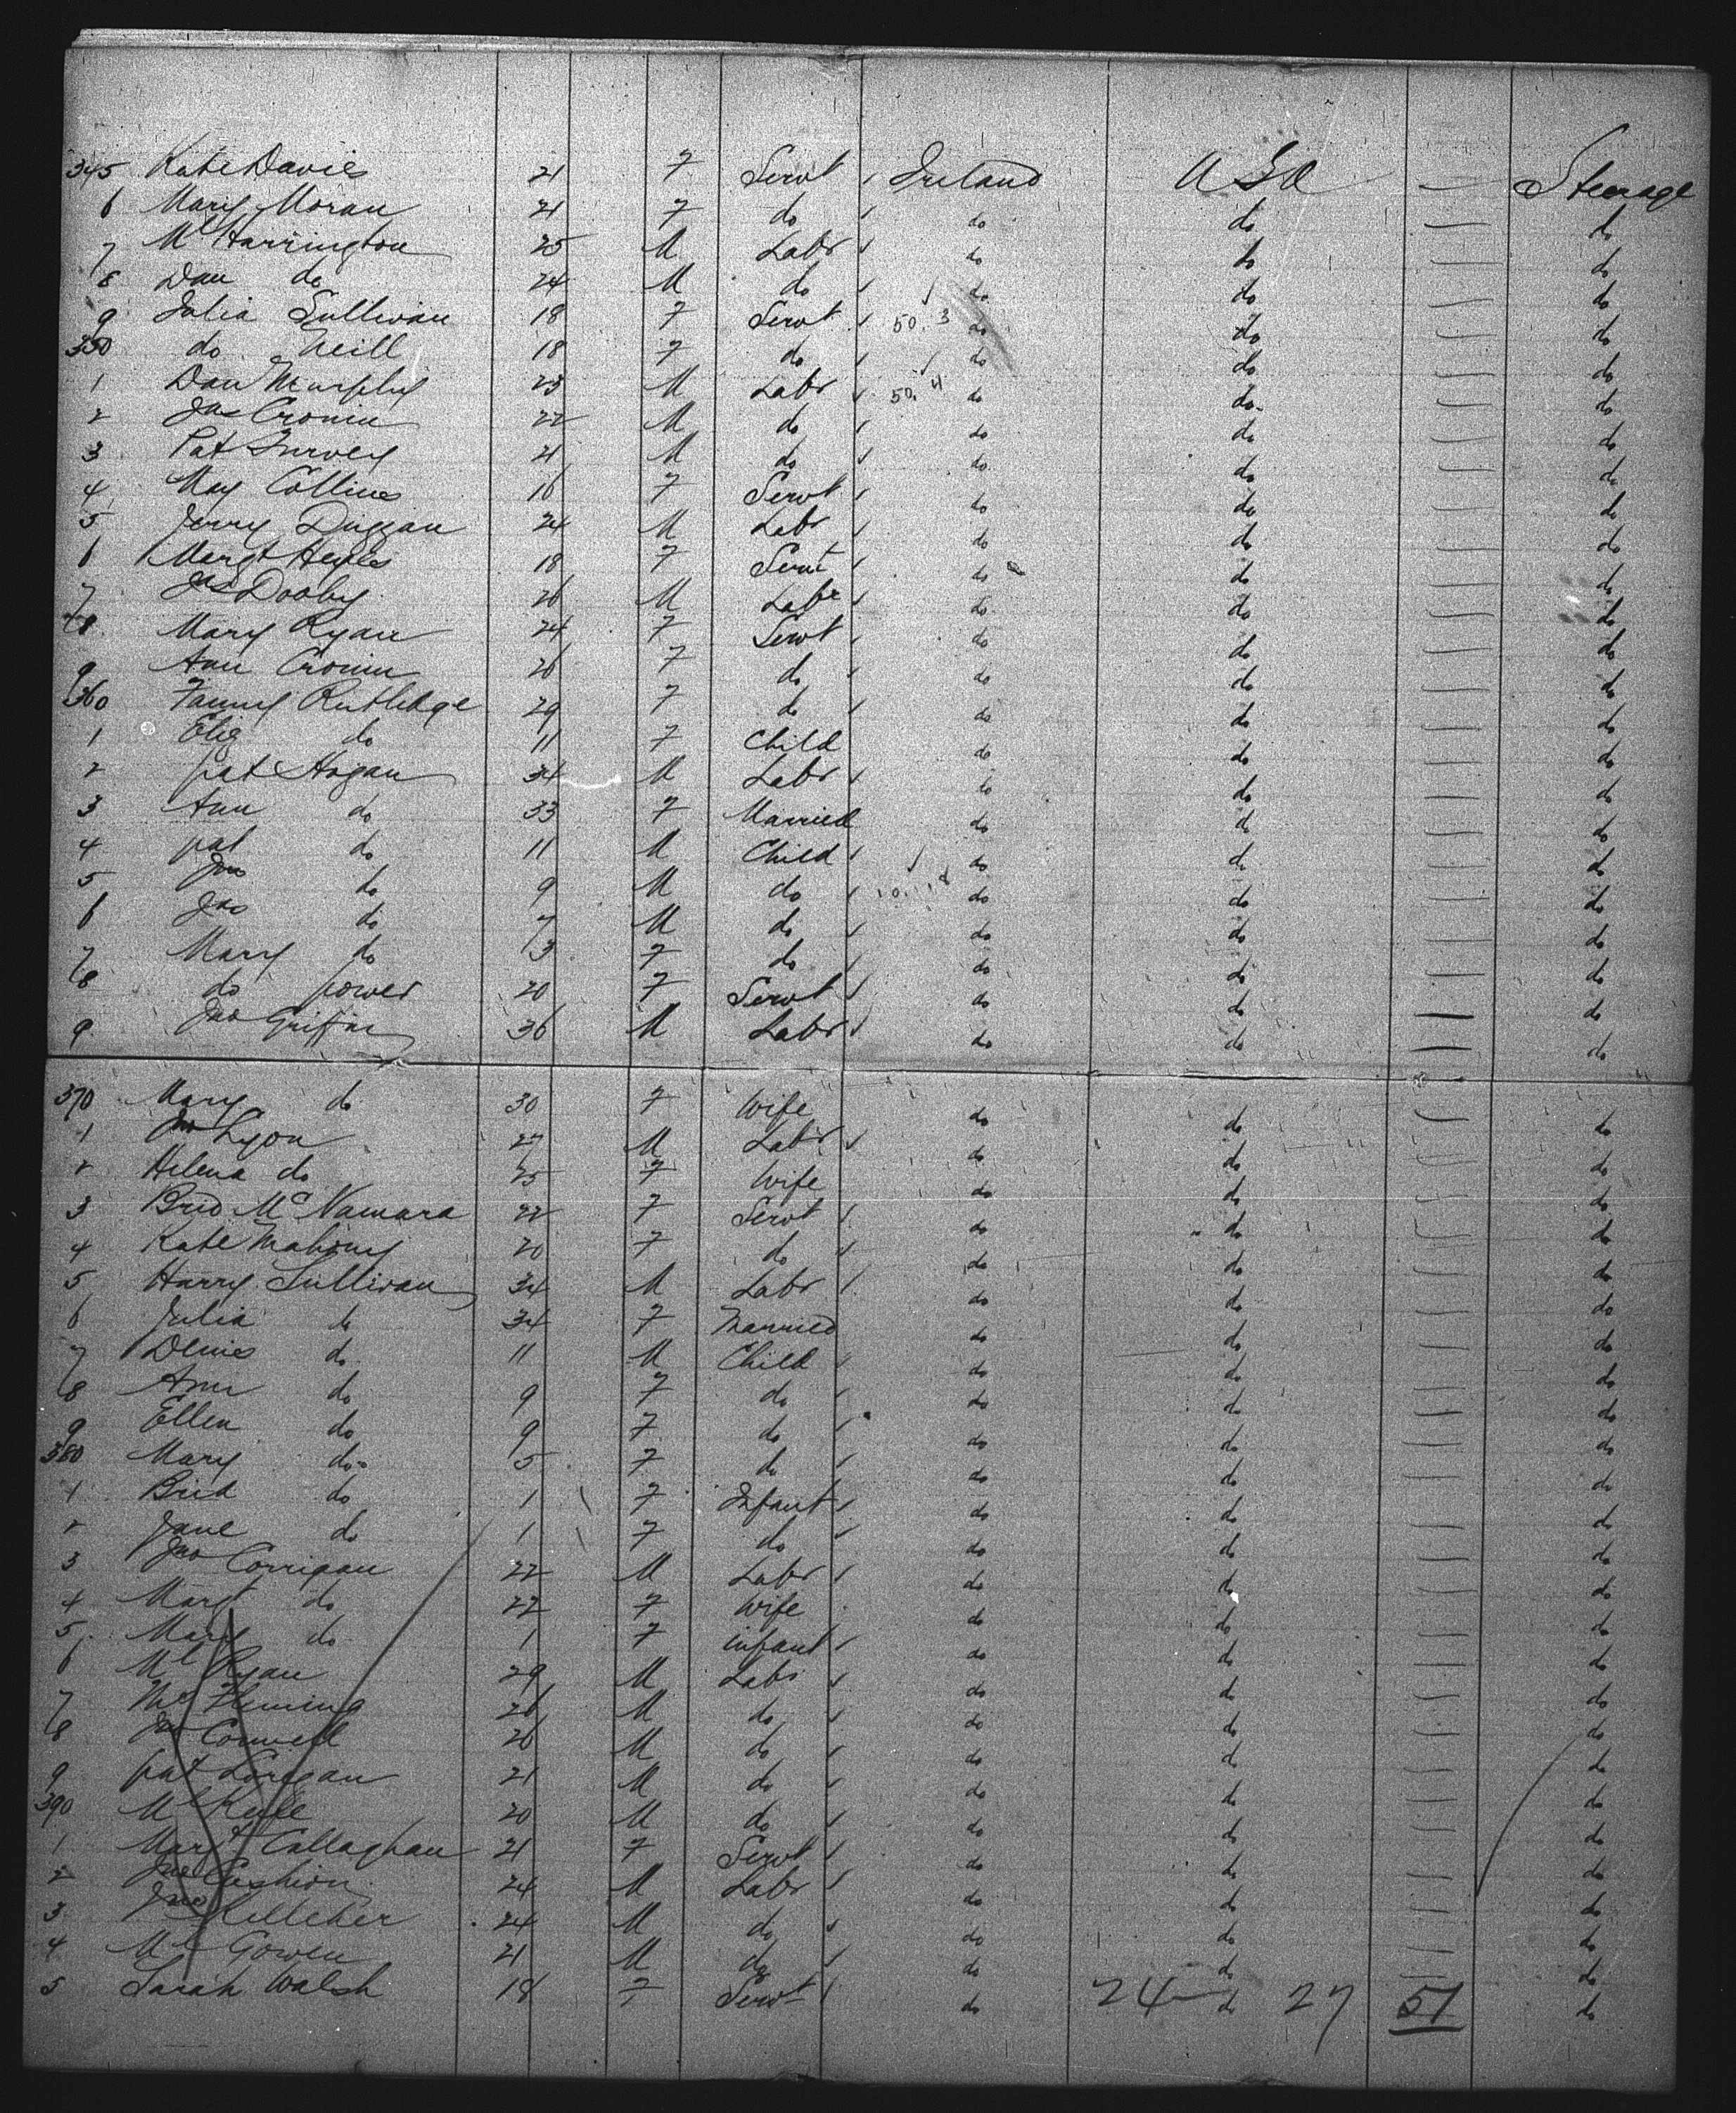 345 Kate Davies 21 F Servt Ireland USA — Steerage
6 Mary Moran 21 F do do do — do
7 Ml Harrington 25 M Labr do do — do
8 Dan do 24 M do do do — do
9 Julia Sullivan 18 F Servt 50. 3 do do — do
350 do Neill 18 F do do do — do
1 Dan Murphy 23 M Labr 50. 4 do do — do
2 Jas Cronin 22 M do do do — do
3 Pat Furvey 21 M do do do — do
4 May Collins 16 F Servt do do — do
5 Jerry Duggan 24 M Labr do do — do
6 Margt 18 F Servt do do — do
7 Jas Dooley 26 M Labr do do — do
8 Mary Ryan 24 F Servt do do — do
9 Ann Cronin 26 F do do do — do
360 Fanny Rutledge 29 F do do do — do
1 Eliz do 11 F Child do do — do
2 pat Hogan 34 M Labr do do — do
3 Ann do 33 F Married do do — do
4 pat do 11 M Child do do — do
5 Jno do 9 M do do do — do
6 Jas do 7 M do do do — do
7 Mary do 3 F do do do — do
8 do power 20 F Servt do do — do
9 Jno Griffin 36 M Labr do do — do
370 Mary do 30 F Wife do do — do
1 Jno Lyon 27 M Labr do do — do
2 Helena do 25 F Wife do do — do
3 Brid McNamara 22 F Servt do do — do
4 Kate Mahony 20 F do do do — do
5 Harry Sullivan 34 M Labr do do — do
6 Julia do 34 F Married do do — do
7 Denis do 11 M Child do do — do
8 Ann do 9 F do do do — do
9 Ellen do 9 F do do do — do
380 Mary do 5 F do do do — do
1 Brid do 1 F Infant do do — do
2 Jane do 1 F do do do — do
3 Jno Corrigan 22 M Labr do do — do
4 Margt do 22 F Wife do do — do
5 Mary do 1 F infant do do — do
6 Ml Ryan 29 M Labr do do — do
7 Fleming 26 M do do do — do
8 Jno Connell 26 M do do do — do
9 pat 21 M do do do — do
390 Ml 20 M do do do — do
1 Margt Callaghan 21 F Servt do do — do
2 Jno Cushion 24 M Labr do do — do
3 Jno Kelleher 24 M do do do — do
4 Ml Gowen 21 M do do do — do
5 Sarah Walsh 18 F Servt do 24 do 27 51 do